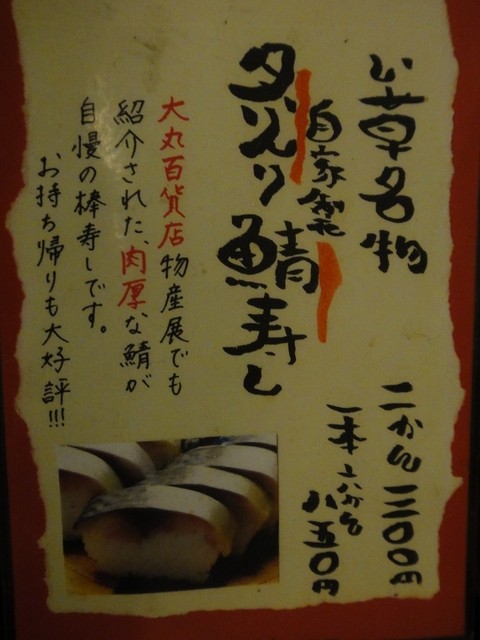 い草名物
二かん 三〇〇円
一本 六かん
八五〇円
自家製
炙り鯖寿し
大丸百貨店物産展でも
紹介された、肉厚な鯖が
自慢の棒寿しです。
お持ち帰りも大好評!!!